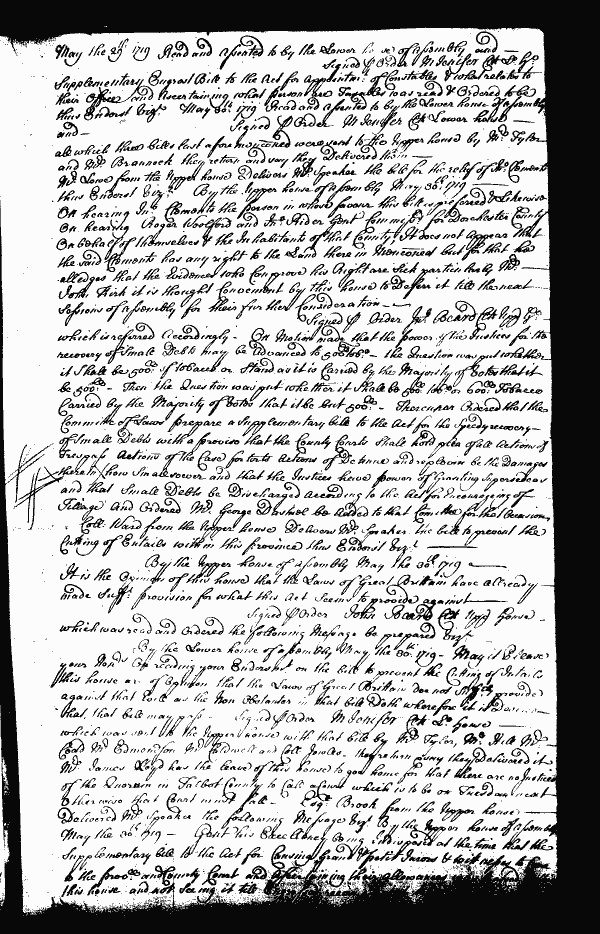 May the 29th 1719 Read and assented to by the Lower house of assembly and
Signed P Order M Jenifer Clk Lr Hs
Supplementary Engrost Bill to the Act for Appointmt. of Constables & what relates to
their Office and ascertaining what persons are Taxables was read & Ordered to be
thus Endorst Vizt. May 30th 1719 Read and assented to by the Lower house of assembly
and Signed P Order M Jenifer Clk Lower house
all which three bills last aforemenconed were sent to the upper house by Mr Tyler
and Mr Brannock they return and say they Delivered them
Mr Lowe from the upper house Delivers Mr Speaker the bill for the relief of Clements
thus Endorst Vizt. By the upper house of assembly May 30th 1719
On hearing Jno. Clements the person in whose favour this bill is preferred & Likewise
On hearing Roger Woolford and Jno. Rider Gent Committee for Dorchester County
On behalf of themselves & the Inhabitants of that County, It does not Appear that
the said Clements has any right to the Land there in menconed but for that he
alledges that the Evidences who Can prove his Right are Sick particularly Mr
John Kirk it is thought Convenient by this house to Deferr it till the next
Sessions of assembly for their further Consideration
Signed P Order Jno. Beard Clk upp Hs
which is referred accordingly - On Motion made that the power of the Justices for the
recovery of Small Debts may be advanced to the Question was put whether
it Shall be 500l. of tobacco or Stand as it is Carried by the Majority of Votes that it
be 500l. - Then the Question was put whether it Shall be 500l. or 600l. Tobacco
Carried by the Majority of Votes that it be but 500l. - Thereupon Ordered that the
Committee of Laws prepare a Supplementary bill to the Act for the Speedy recovery
of Small Debts with a proviso that the County Courts Shall hold plea of all Actions of
Trespass Actions of the Case for torts Actions of Detinue and replevin be the Damages
therein how Small soever and that the Justices have power of Granting Supersedeas
and that Small Debts be Discharged according to the Act for Encouraging of
Tillage and Ordered Mr. George Dashiel be added to that Comittee for that Occasion
Coll. Ward from the upper house Delivers Mr Speaker the bill to prevent the
Cutting of Entails within this province thus Endorst Vizt
By the upper house of assembly May the 30th 1719
It is the Opinion of this house that the Laws of Great Brittain have allready
made Sufft. provision for what this Act Seems to provide against
Signed P Order John Beard Clk upp house
which was read and ordered the following Message be prepared Vizt
By the Lower house of assembly May the 30th 1719 - May it please
your Honrs On reading your Endorsmt on the bill to prevent the Cutting of Intails
this house are of opinion that the Laws of Great Brittain doe not Suffly provide
against that Evile as the Non Obstante in that bill Doth wherefore it is Desired
that that bill may pass - Signed P Order M Jenifer Clk Lr house
which was sent to the upper house with that bill by Mr Tyler, Mr Hill Mr
Mr Edmondson Mr Caldwell and Coll Jowles. they return & say they Delivered it
Mr James Lloyd has the leave of this house to goe home for that there are no Justices
of the Quorum in Talbot County to Call a Court which is to be on Tuesday next
Otherwise that Court must fall - Esqr Brook from the upper house
Delivered Mr Speaker the following Message Vizt By the upper house of assembly
May the 30th 1719 - Gent His Excellency being Indisposed at the time that the
Supplementary bill to the Act for Causing Grand & Petit Jurors & Witnesses to
to the Provll. and County Court and ascertaining their allowances
this house and not Seeing it till